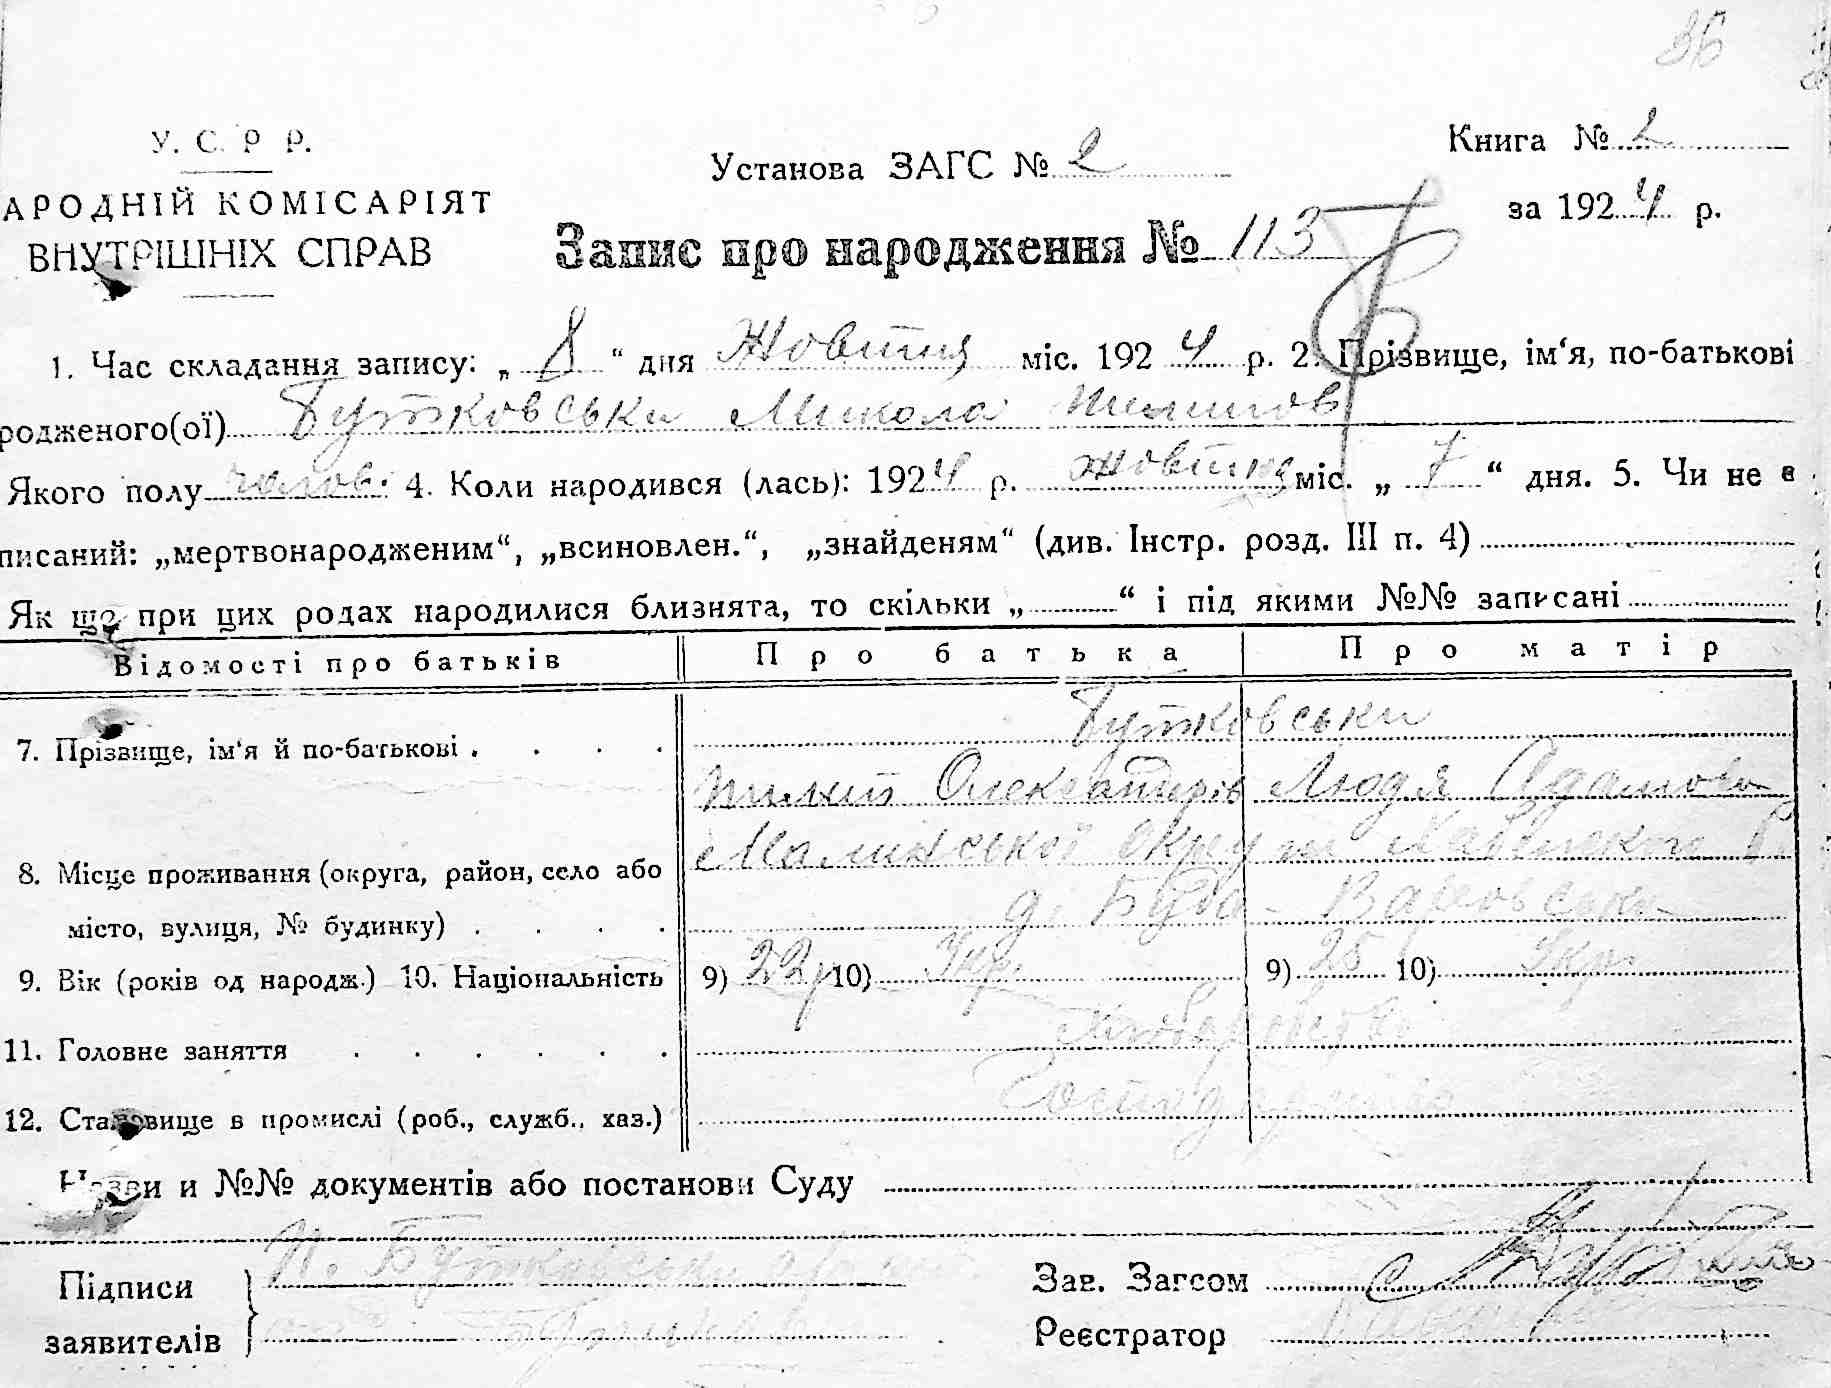 36
У. С. Р Р.
Установа ЗАГС № 2
Книга № 2
АРОДНІЙ КОМІСАРІЯТ
ВНУТРІШНІХ СПРАВ
за 1924 р.
Запис про народження № 113
1. Час складання запису: „8“ дня Жовтня міс. 1924 р. 2. Прізвище, ім‘я, по-батькові
родженого(ої) Бутковськи Микола
Якого полу чолов. 4. Коли народився (лась): 1924 р. жовтня міс. „7“ дня. 5. Чи не в
писаний: „мертвонародженим“, „всиновлен.“, „знайденям“ (див. Інстр. розд. III п. 4)
Як що при цих родах народилися близнята, то скільки „ “ і під якими №№ записані
Відомості про батьків Про батька Про матір
7. Прізвище, ім‘я й по-батькові Бутковськи
Олександрів Людя Адамова
8. Місце проживання (округа, район, село або Малинської округи
місто, вулиця, № будинку) Буда-Варовськи
9. Вік (років од народж.) 10. Національність 9) 22р 10) Укр. 9) 25 10) Укр.
11. Головне заняття Хліборобство
12. Становище в промислі (роб., служб., хаз.)
Назви и №№ документів або постанови Суду
Підписи П. Бутковськи Зав. Загсом
заявителів Реєстратор